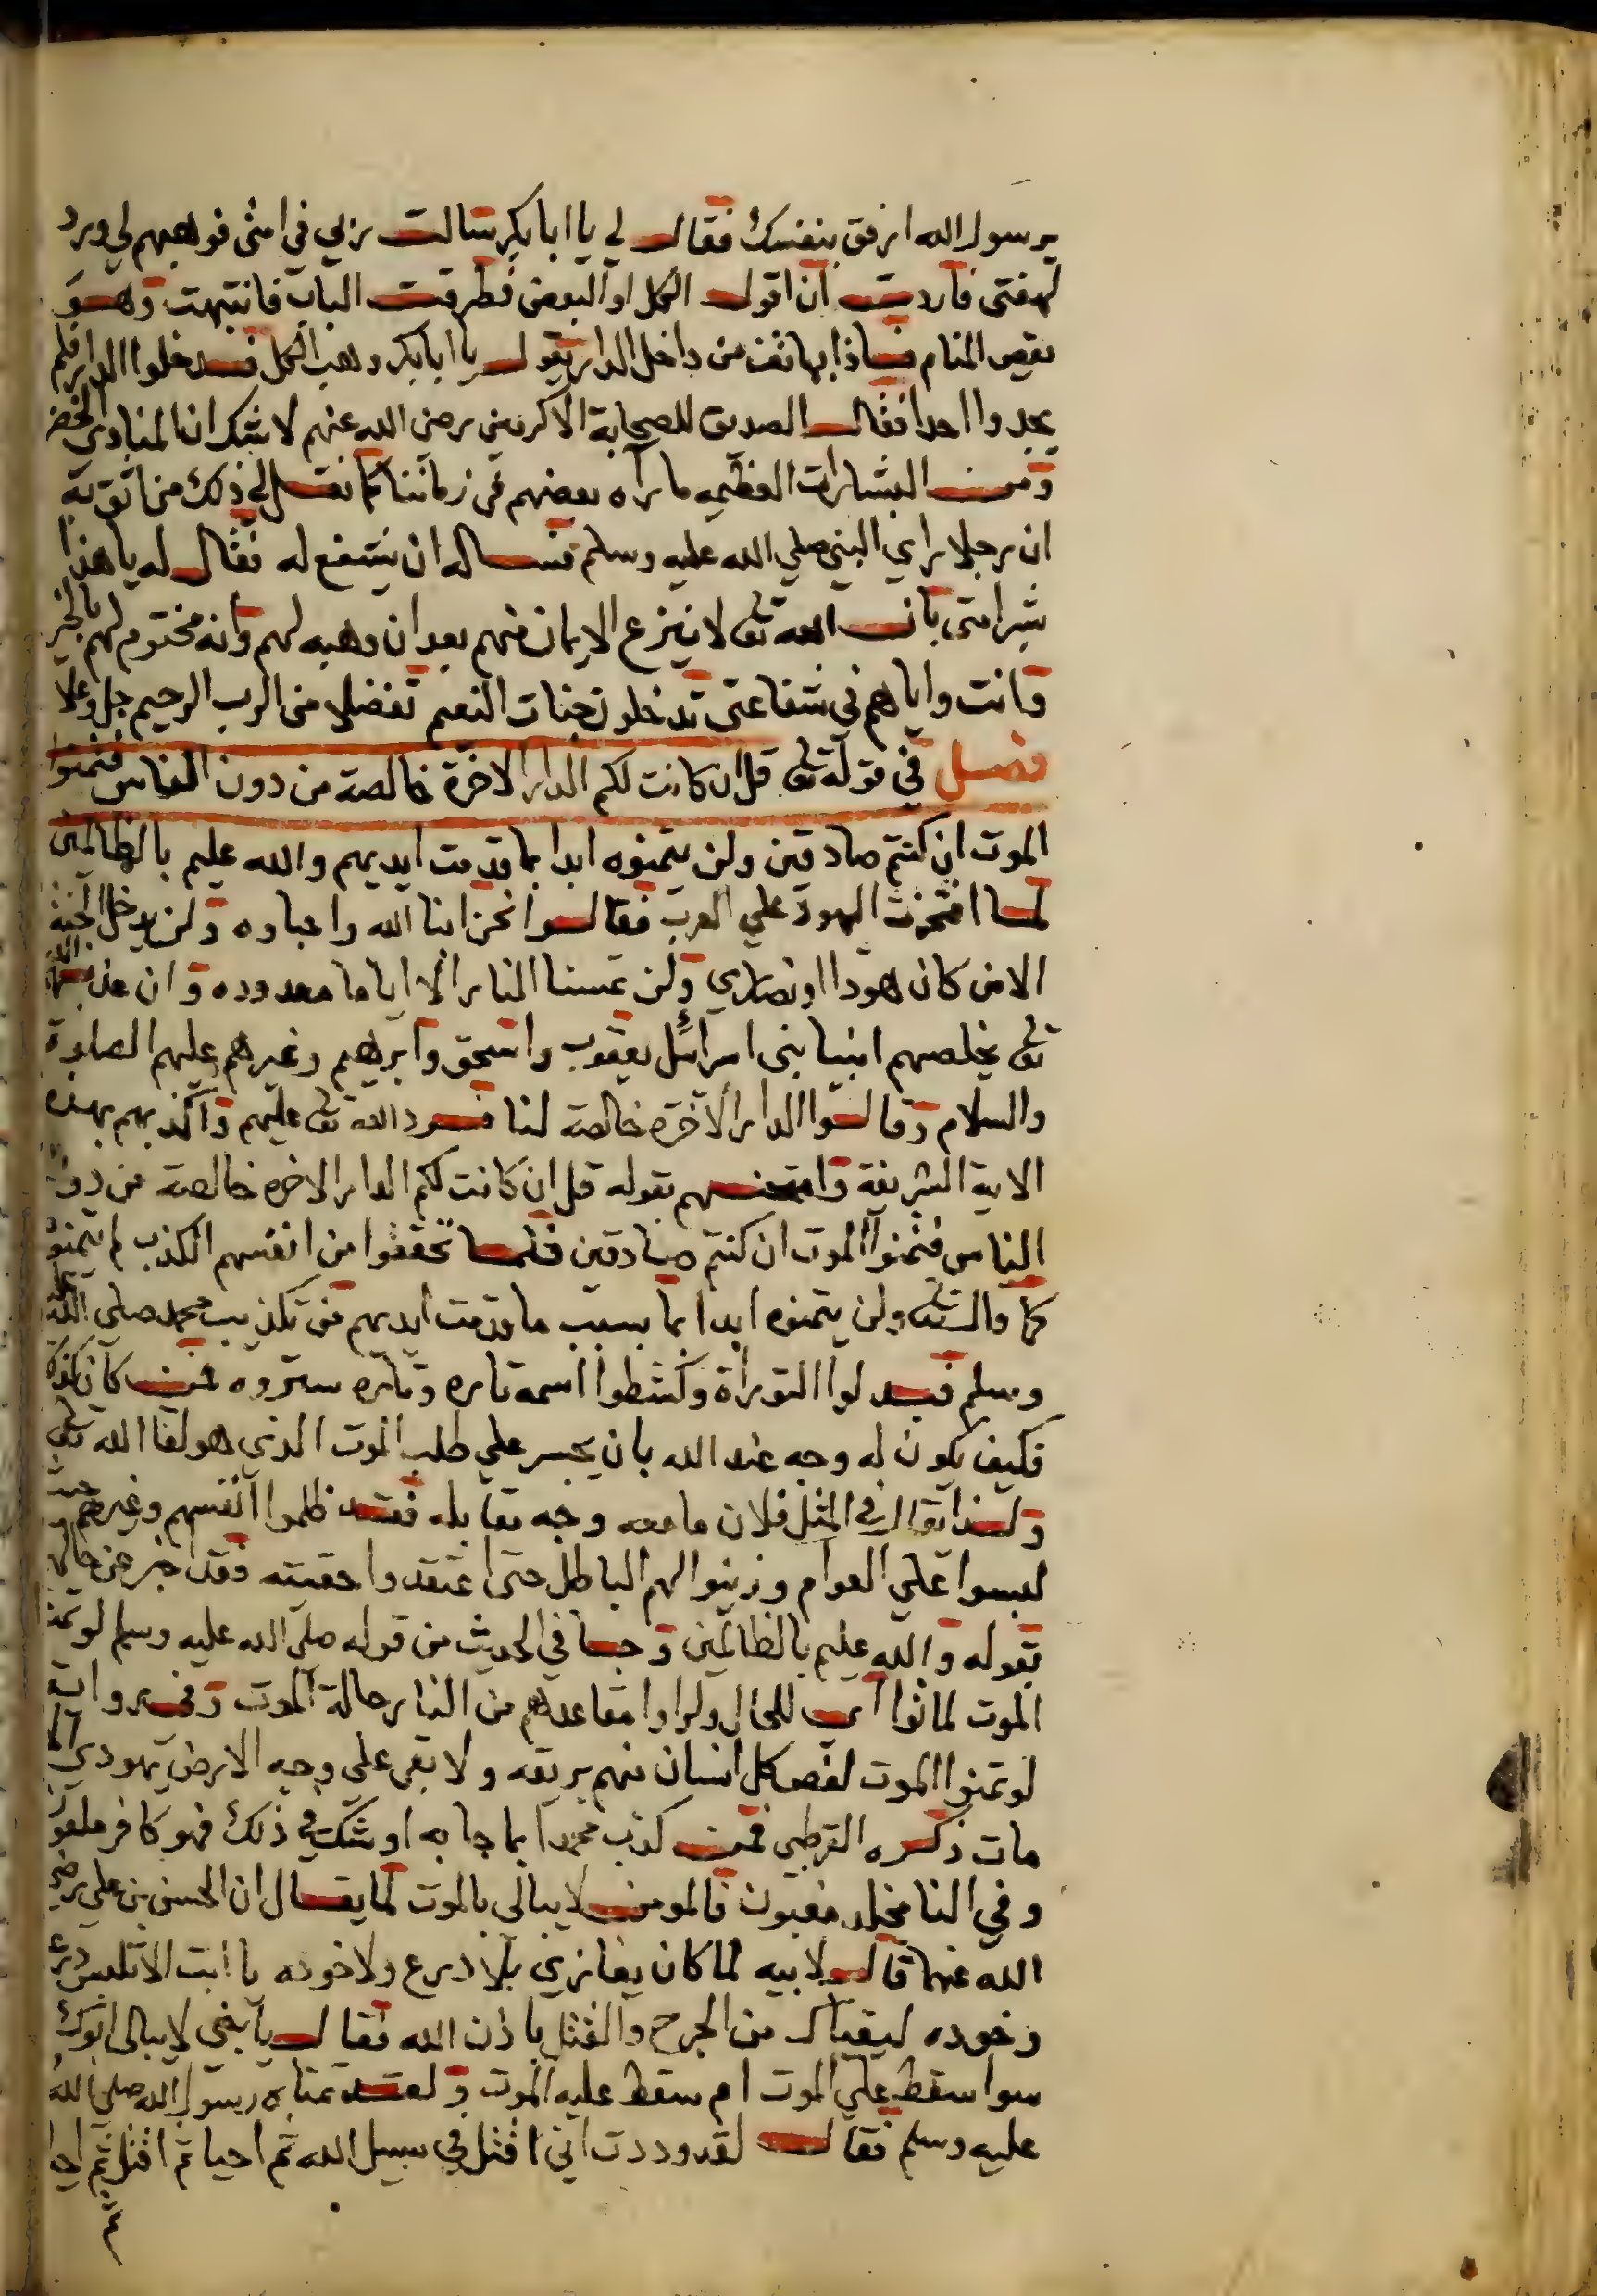 يرسول الله ارفق بنفسك فقال لي يا ابا بكر سالت ربي في امتي فوهبهم لي ورد
لهفتي فاردت ان اقول الكل او البعض فطرقت الباب فانتبهت وهو
يقص المنام فاذا بهاتف من داخل الدار يقول يا ابا بكر وهب الكل فدخلوا الدار فلم
يجدوا احدا فقال الصديق للصحابة الاكرمين رضي الله عنهم لا شك ان المنادي الخضر
ومن البشارات العظيمه ما رآه بعضهم في زماننا كما نقل لي ذلك من اثق به
ان رجلا راي النبي صلي الله عليه وسلم فساله ان يشفع له فقال له يا هذا
بشر امتي بان الله تعالى لا ينزع الايمان منهم بعد ان وهبه لهم وانه مختوم لهم بالخير
وانت واياهم في شفاعتي تدخلون جنات النعيم تفضلا من الرب الرحيم جل وعلا
فصل في قوله تعالى قل ان كانت لكم الدار الاخرة خالصة من دون الناس فتمنوا
الموت ان كنتم صادقين ولن يتمنوه ابدا بما قدمت ايديهم والله عليم بالظالمين
لما افتخرت اليهود علي العرب فقالوا نحن ابنا الله واحباوه ولن يدخل الجنة
الا من كان هودا او نصاري ولن تمسنا النار الا اياما معدوده وان عذبهم الله
تعالى يخلصهم انبيا بني اسرائل يعقوب واسحق وابرهيم وغيرهم عليهم الصلوة
والسلام وقالوا الدار الاخرة خالصة لنا فرد الله تعالى عليهم واكذبهم بهذه
الاية الشريفة وامتحنهم بقوله قل ان كانت لكم الدار الاخره خالصة من دون
الناس فتمنوا الموت ان كنتم صادقين فلما تحققوا من انفسهم الكذب لم يتمنوه
كما قال تعالى ولن يتمنوه ابدا بما بسبب ما قدمت ايديهم من تكذيب محمد صلى الله عليه
وسلم فبدلوا التوراة وكشطوا اسمه تاره وتاره ستروه فمن كان كذلك
فكيف يكون له وجه عند الله بان يجسر علي طلب الموت الذي هو لقا الله تعالى
ولهذا يقال في المثل فلان ما معه وجه يقابله فقد ظلموا انفسهم وغيرهم حيث
لبسوا علي العوام وزينوا لهم الباطل حتى اعتقدوا حقيته فقد اخبر عن حالهم
بقوله والله عليم بالظالمين وجا في الحديث من قوله صلى الله عليه وسلم لو تمنوا
الموت لماتوا اي للحال ولراوا مقاعدهم من النار حالة الموت وفي رواية
لو تمنوا الموت لغص كل انسان منهم بريقه ولا بقي علي وجه الارض يهودي الا
مات ذكره القرطبي فمن كذب محمدا بما جا به او شك في ذلك فهو كافر ملعون
وفي النار مخلد مغبون فالمومن لا يبالي بالموت لما يقال ان الحسن بن علي رضي
الله عنهما قال لابيه لما كان يغازي بلا درع ولا خوذه يا ابت الا تلبس درع
وخوده ليقياك من الجرح والقتل باذن الله فقال يا بني لا يبالي ابوك
سوا سقط علي الموت ام سقط عليه الموت ولقد تمناه رسول الله صلى الله
عليه وسلم فقال لقد وددت اني اقتل في سبيل الله ثم احيا ثم اقتل ثم احيا